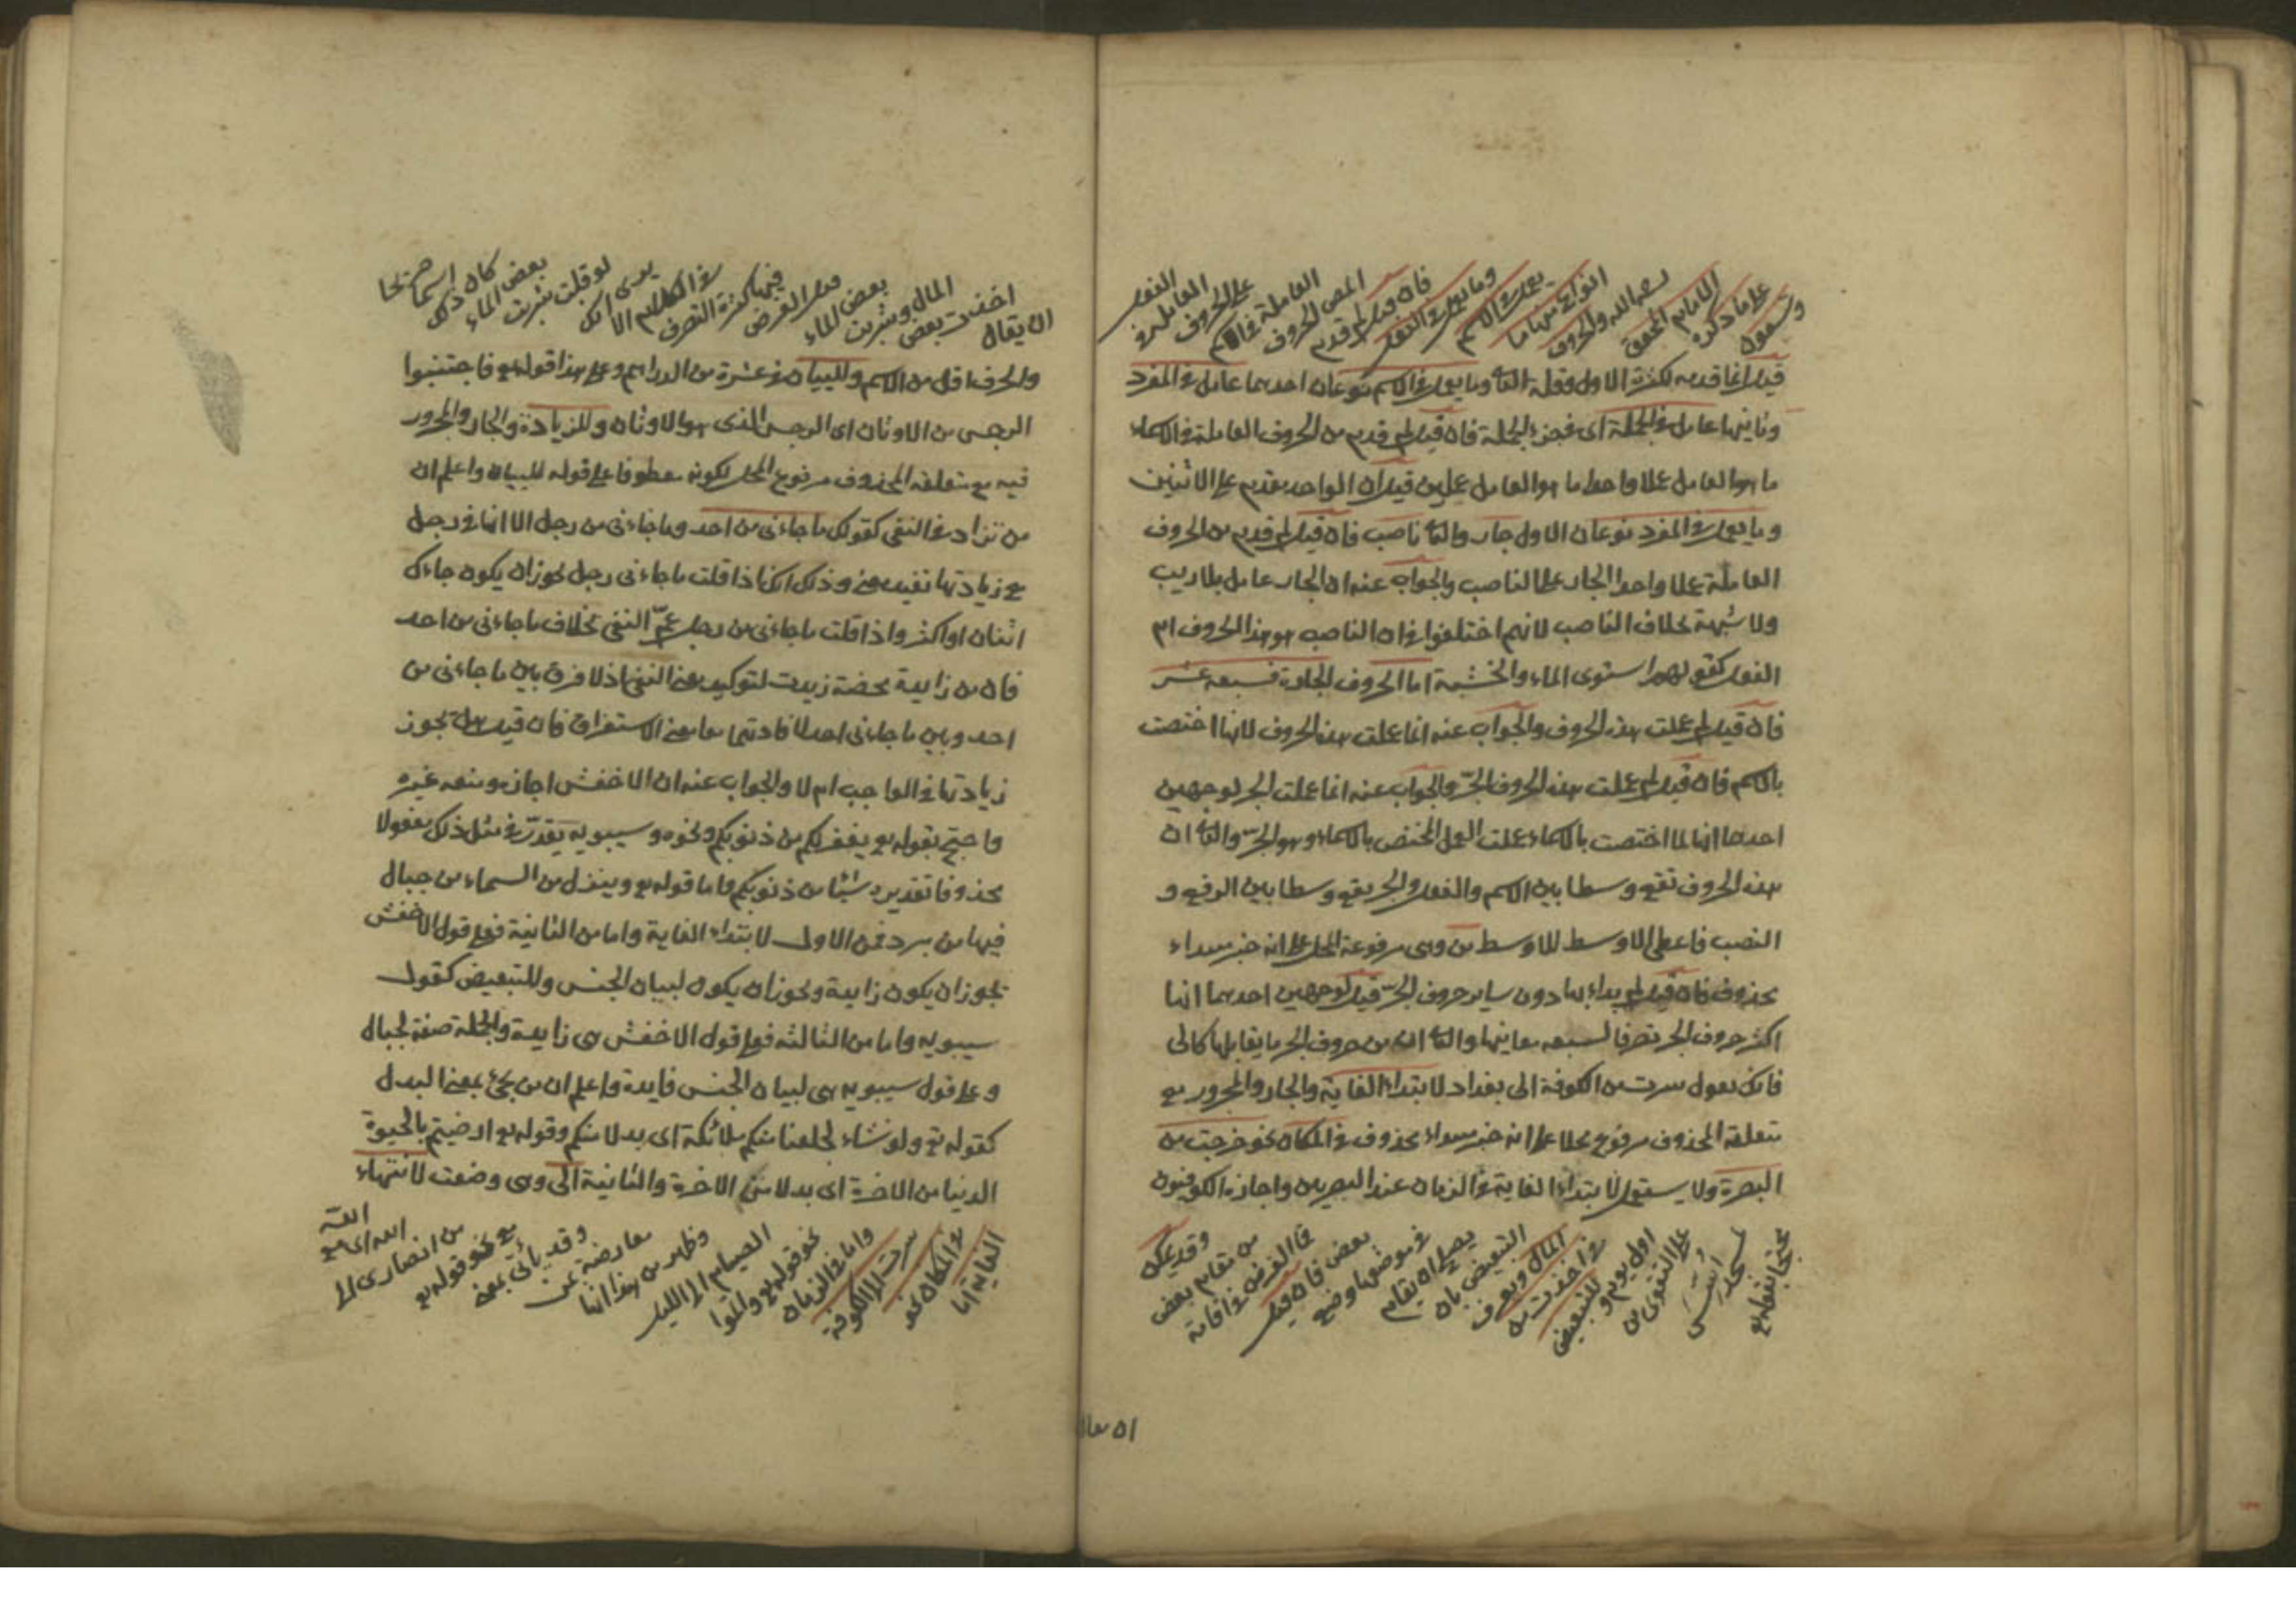 وتسعون على ما ذكره الامام المحقق رحمه الله والحروف انواع منها ما يعمل في الاسم وما يعمل في الفعل فان قيل لم قدم المص الحروف العاملة في الاسم على الحروف العاملة في الفعل
قيل انما قدمه لكثرة الاول وقلة الثا وما يعمل في الاسم نوعان احدهما عامل في المفرد
وثانيهما عامل في الجملة اى فى جزء الجملة فان قيل لم قدم من الحروف العاملة في الاسماء
ما هو العامل عملا واحدا ما هو العامل عملين قيل ان الواحد يقدم على الاثنين
وما يعمل في المفرد نوعان الاول جار والثا ناصب فان قيل لم قدم من الحروف
العاملة عملا واحدا الجار على الناصب والجواب عنه ان الجار عامل بلا ريب
ولا شبهة بخلاف الناصب لانهم اختلفوا في ان الناصب هو هذا الحروف ام
الفعل كقولهم استوى الماء والخشبة اما الحروف الجارة فسبعة عشر
فان قيل لم عملت هذه الحروف والجواب عنه انما عملت هذه الحروف لانها اختصت
بالاسم فان قيل لم عملت هذه الحروف الجرّ والجواب عنه انما عملت الجر لوجهين
احدهما انها لما اختصت بالاسماء عملت العمل المختص بالاسماء وهو الجرّ والثا ان
هذه الحروف تقع وسطا بين الاسم والفعل والجر يقع وسطا بين الرفع و
النصب فاعطى الاوسط للاوسط من وهى مرفوعة المحل على انه خبر مبتداء
محذوف فان قيل لم بداء بها دون ساير حروف الجرّ قيل لوجهين احدهما انها
اكثر حروف الجر تصرفا لسبعة معانيها والثا ان من حروف الجر ما يقابلها كالى
فانك تقول سرت من الكوفة الى بغداد لابتداء الغاية والجار والمجرور مع
متعلقه المحذوف مرفوع محلا على انه خبر مبتداء محذوف في المكان نحو خرجت من
البصرة ولا يستعمل لابتداء الغاية في الزمان عند البصريين واجازه الكوفيون
محتجا بقوله تع لمسجد اُسِّسَ على التقوى من اول يوم وللتبعيض في اخذت من المال ويعرف التبعيض بان يصلح ان يقام في موضعها وضع بعض فان قيل فما الفرض في اقامة من مقام بعض وقد يمكن
ان يقال
ان يقال اخذت بعض المال وشربت بعض الماء قيل الغرض فيها كثرة التصرف في الكلام الا يرى انك لو قلت شربت بعض الماء كان ذلك اسما صريحا
والحرف اقل من الاسم وللبيان في عشرة من الدراهم وعلى هذا قوله تع فاجتنبوا
الرجس من الاوثان اى الرجس الذى هو الاوثان وللزيادة والجار والمجرور
فيه مع متعلقه المحذوف مرفوع المحل لكونه معطوفا على قوله للبيان واعلم ان
من تزاد في النفى كقولك ما جاءنى من احد وما جاءنى من رجل الا انها في رجل
مع زيادتها تفيد معنى وذلك انك اذا قلت ما جاءنى رجل يجوز ان يكون جاءك
اثنان او اكثر واذا قلت ما جاءنى من رجل عمّ النفى بخلاف ما جاءنى من احد
فان من زايدة محضة زيدت لتوكيد معنى النفى اذ لا فرق بين ما جاءنى من
احد وبين ما جاءنى احد لافادتهما معا معنى الاستغراق فان قيل هل تجوز
زيادتها في الواجب ام لا والجواب عنه ان الاخفش اجازه ومنعه غيره
واحتج بقوله تع يغفر لكم من ذنوبكم ونحوه وسيبويه يقدّر في مثل ذلك مفعولا
محذوفا تقديره شيئا من ذنوبكم واما قوله تع وينزل من السماء من جبال
فيها من برد فمن الاولى لابتداء الغاية واما من الثانية فعلى قول الاخفش
يجوز ان يكون زايدة ويجوز ان يكون لبيان الجنس وللتبعيض كقول
سيبويه واما من الثالثة فعلى قول الاخفش هى زايدة والجملة صفة لجبال
وعلى قول سيبويه هى لبيان الجنس فايدة واعلم ان من يجئ بمعنى البدل
كقوله تع ولو نشاء لجعلنا منكم ملائكة اى بدلا منكم وقوله تع ارضيتم بالحيوة
الدنيا من الاخرة اى بدلا من الاخرة والثانية الى وهى وضعت لانتهاء
الغاية اما في المكان نحو سرت الى الكوفة واما في الزمان نحو قوله تع واتموا الصيام الى الليل وظهر من هذا انها معارضة عن وقد يأتى بمعنى مع نحو قوله تع من انصارى الى الله اى مع الله